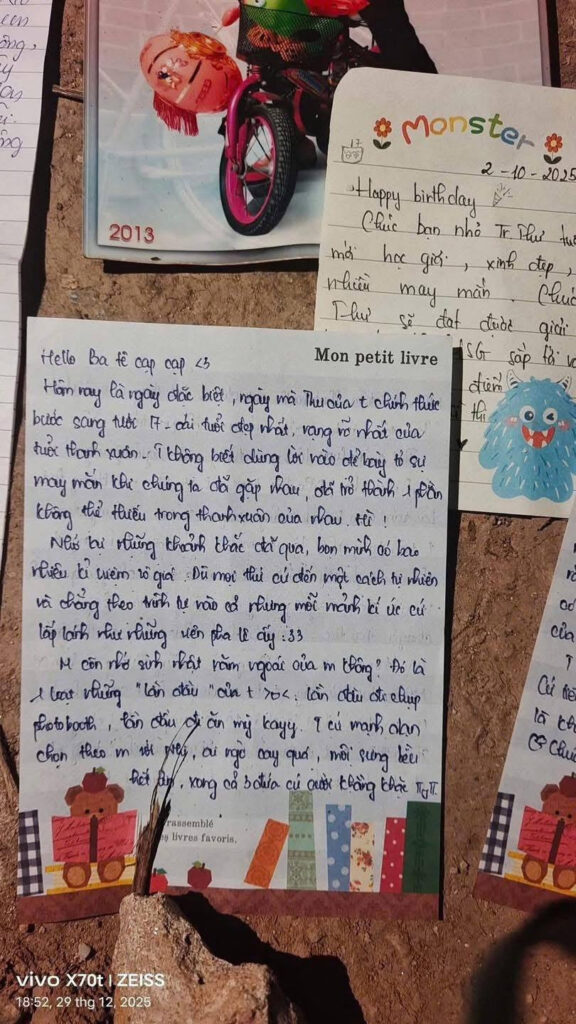 2013
Monster
2-10-2025
Happy birthday
Chúc bạn nhỏ Tr. Thư tuổi
mới học giỏi, xinh đẹp,
nhiều may mắn. Chúc
Thư sẽ đạt được giải
HSG sắp tới
điểm
thi
Mon petit livre
Hello Ba tê cạp cạp <3
Hôm nay là ngày đặc biệt, ngày mà Thư của t chính thức
bước sang tuổi 17 - cái tuổi đẹp nhất, rạng rỡ nhất của
tuổi thanh xuân. T không biết dùng lời nào để bày tỏ sự
may mắn khi chúng ta đã gặp nhau, đã trở thành 1 phần
không thể thiếu trong thanh xuân của nhau. Hì!
Nhớ lại những khoảnh khắc đã qua, bọn mình có bao
nhiêu kỉ niệm rồi. Dù mọi thứ cứ đến một cách tự nhiên
và chẳng theo trình tự nào cả nhưng mỗi mảnh kí ức cứ
lấp lánh như những viên pha lê ấy :33
M còn nhớ sinh nhật năm ngoái của m không? Đó là
1 loạt những "lần đầu" của t >o<: lần đầu đi chụp
photobooth, lần đầu đi ăn mỳ kayy. T cứ mạnh dạn
chọn theo m, ai ngờ cay quá, môi sưng
hết, xong cả 3 đứa cứ cười khằng khặc TyT.
rassemblé
es livres favoris.
của
Cú
là
vivo X70t | ZEISS
18:52, 29 thg 12, 2025